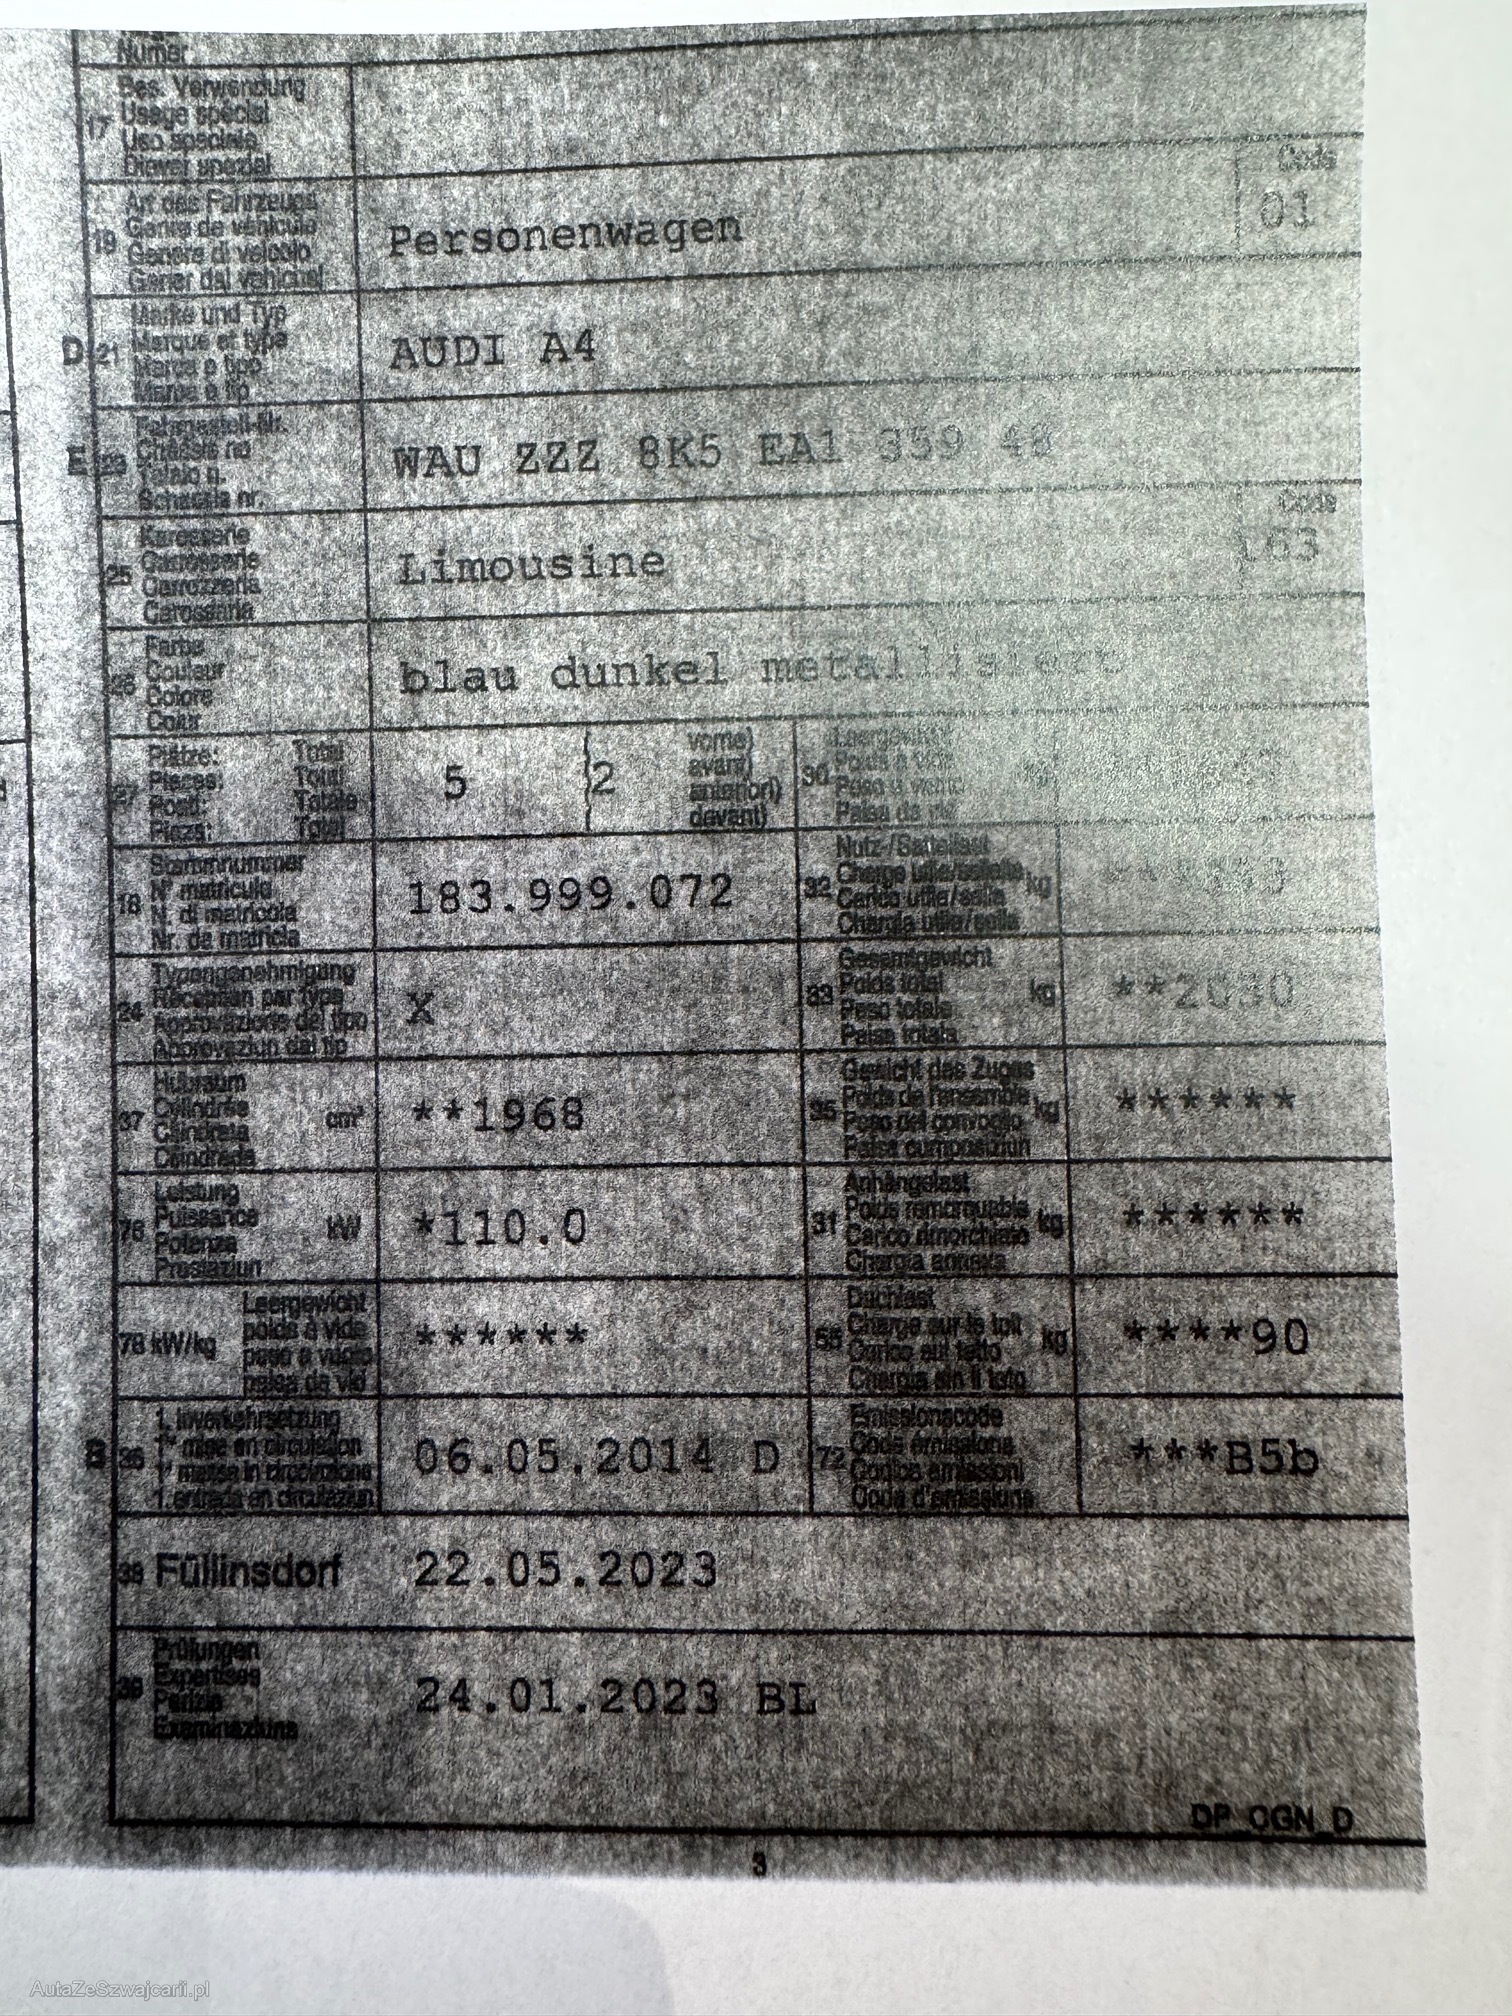 Numer
17
Bes. Verwendung
Usage spécial
Uso speciale
Diever spezial
19
Art des Fahrzeugs
Genre de véhicule
Genere di veicolo
Gener dal vehichel
Personenwagen
Code
01
D 21
Marke und Typ
Marque et type
Marca e tipo
Marca e tip
AUDI A4
E 23
Fahrgestell-Nr.
Châssis no
Telaio n.
Schassis nr.
WAU ZZZ 8K5 EA1 359 48
25
Karosserie
Carosserie
Carrozzeria
Carossaria
Limousine
Code
26
Farbe
Couleur
Colore
Colur
blau dunkel metallisiert
27
Plätze: Total
Places: Total
Posti: Totale
Plazs: Total
5
2
vorne)
avant)
anteriori)
davant)
30
Leergewicht
Poids à vide
Peso a vuoto
Paisa da vid
18
Stammnummer
N° matricule
N. di matricola
Nr. da matricla
183.999.072
32
Nutz-/Sattellast
Charge utile/sellette
Carico utile/sella
Chargia utila/sella
kg
24
Typengenehmigung
Réception par type
Approvazione del tipo
Approvaziun dal tip
X
33
Gesamtgewicht
Poids total
Peso totale
Paisa totala
kg
**2030
37
Hubraum
Cylindrée
Cilindrata
Cilindrada
cm³
**1968
35
Gewicht des Zuges
Poids de l'ensemble
Peso del convoglio
Paisa cumposiziun
kg
******
76
Leistung
Puissance
Potenza
Prestaziun
kW
*110.0
31
Anhängelast
Poids remorquable
Carico rimorchiato
Chargia annexa
kg
******
78 kW/kg
Leergewicht
poids à vide
peso a vuoto
paisa da vid
******
55
Dachlast
Charge sur le toit
Carico sul tetto
Chargia sin il tetg
kg
****90
B 36
1. Inverkehrsetzung
1re mise en circulation
1a messa in circolazione
1. entrada en circulaziun
06.05.2014 D
72
Emissionscode
Code émissions
Codice emissioni
Coda d'emissiuns
***B5b
38 Füllinsdorf 22.05.2023
39
Prüfungen
Expertises
Perizie
Examinaziuns
24.01.2023 BL
DP OGN D
3
AutaZeSzwajcarii.pl